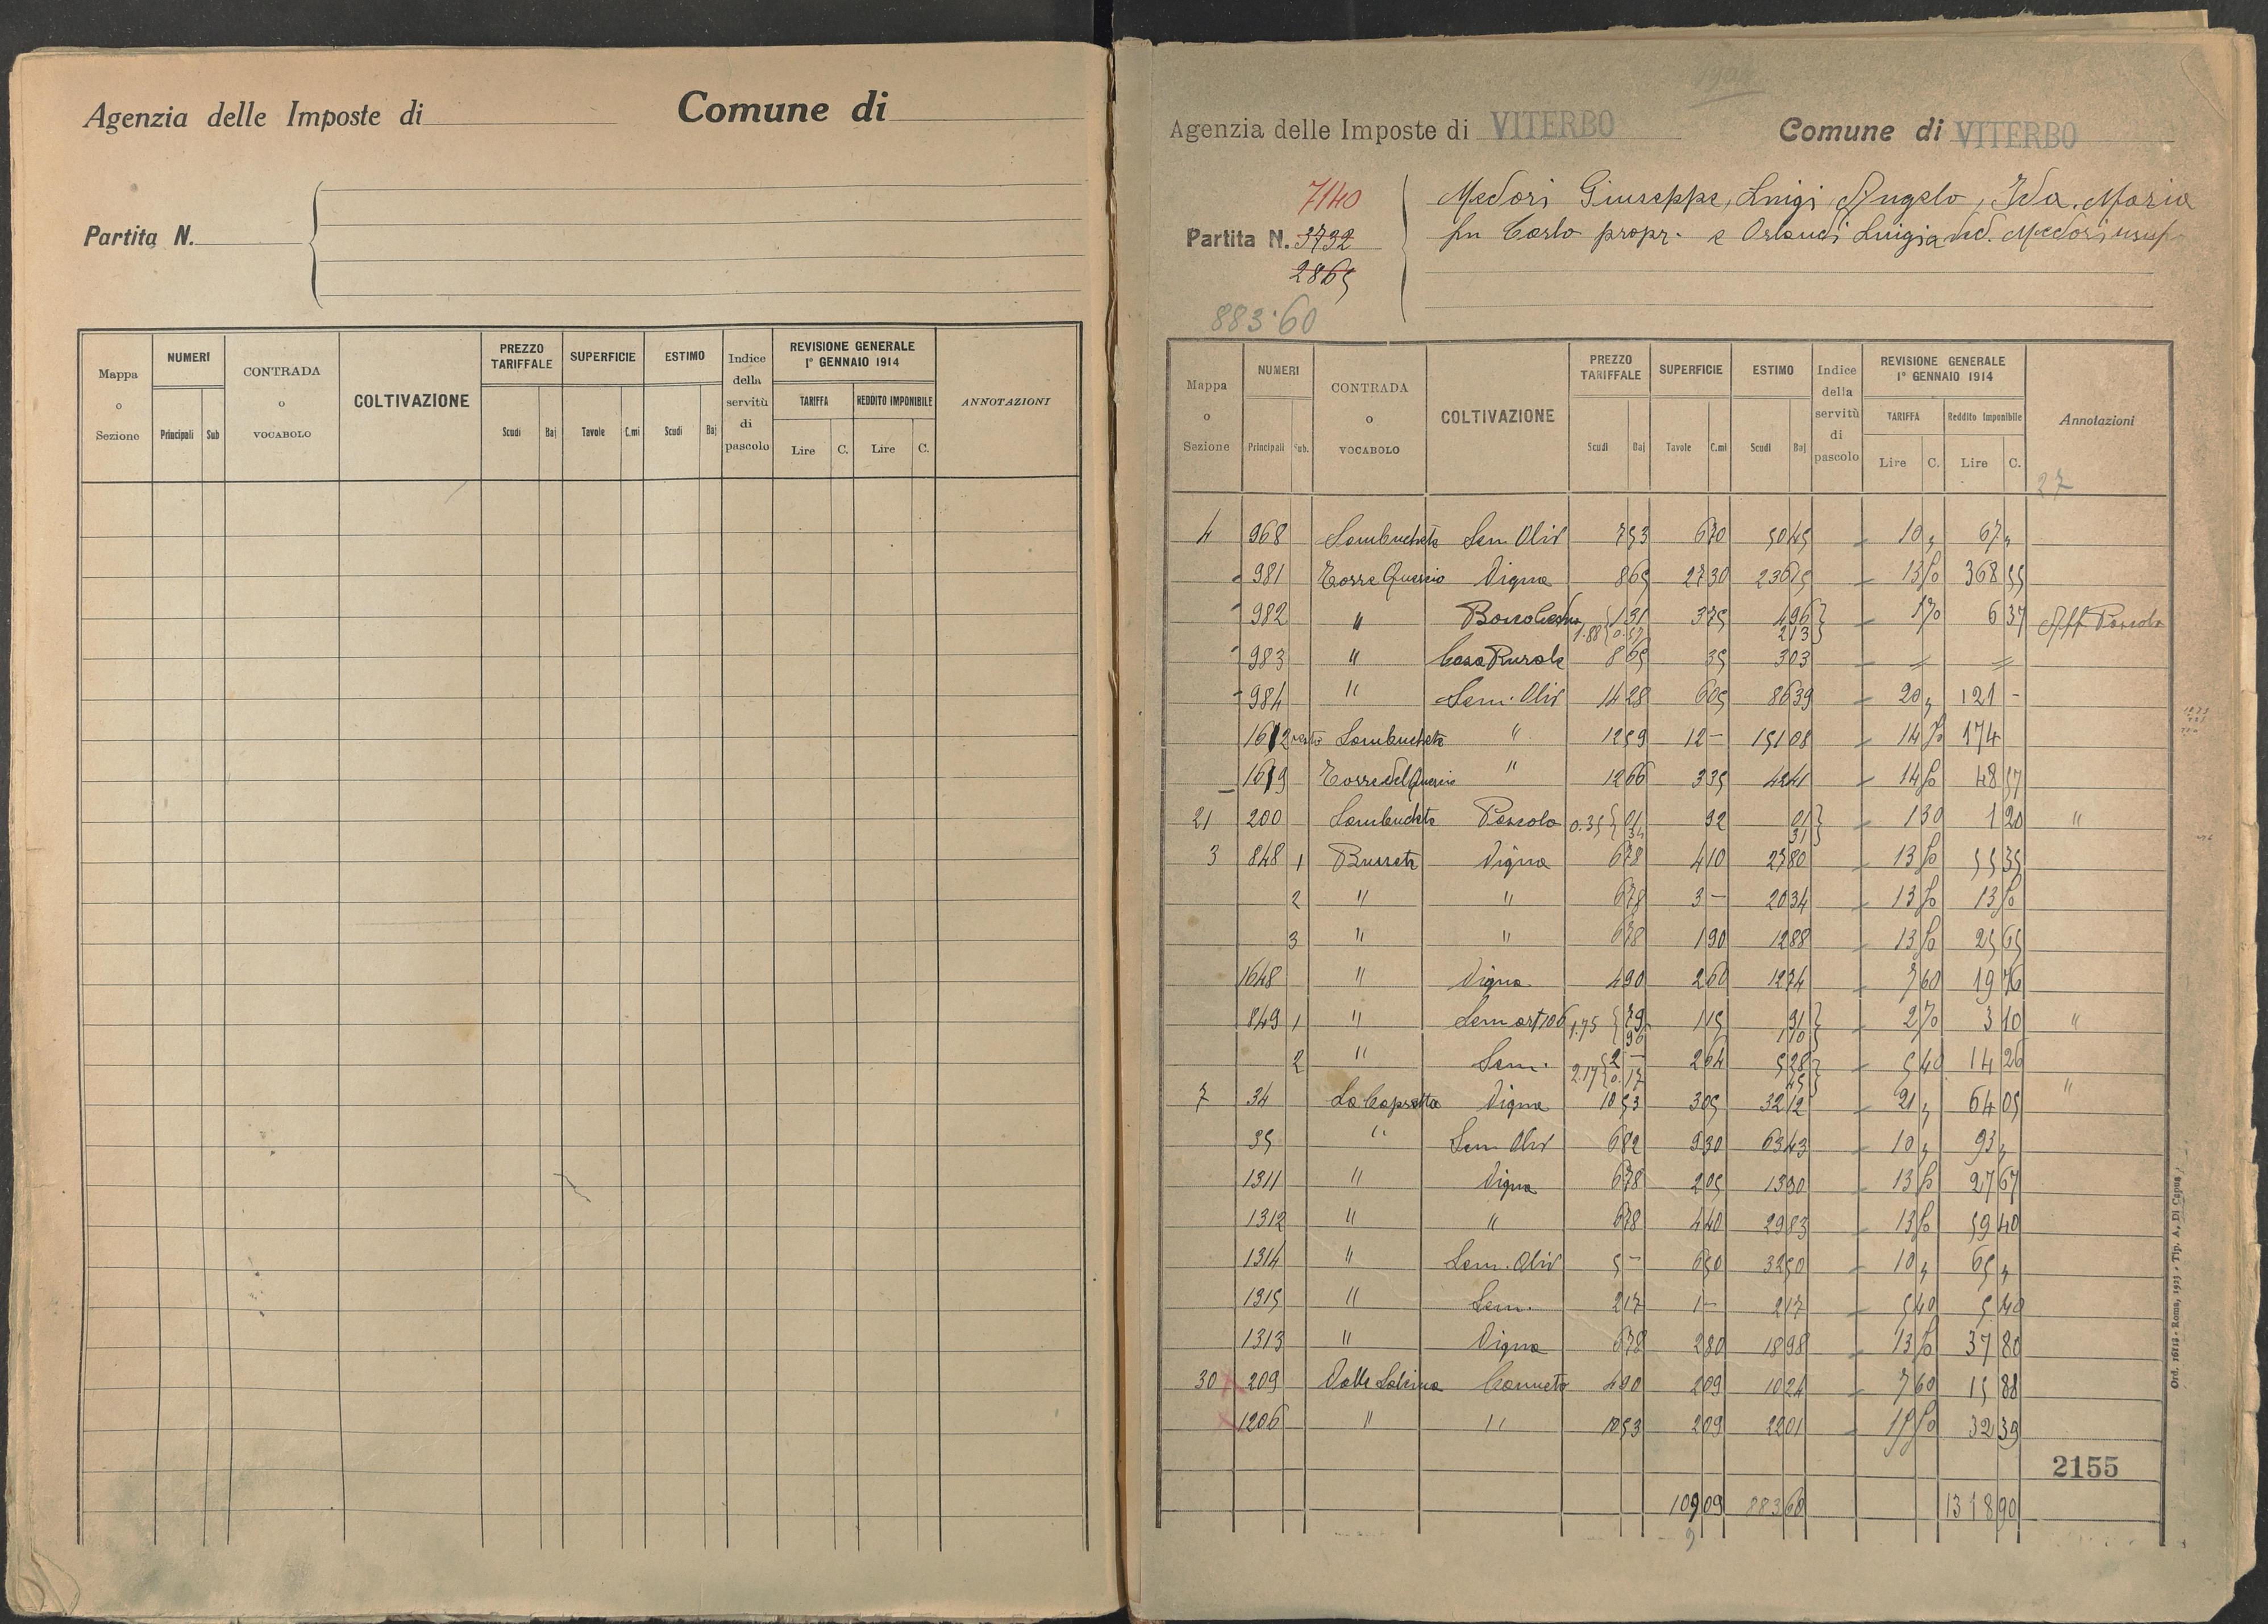 Agenzia delle Imposte di Comune di
Partita N.
Mappa o Sezione NUMERI Principali Sub CONTRADA o VOCABOLO COLTIVAZIONE PREZZO TARIFFALE Scudi Baj SUPERFICIE Tavole C.mi ESTIMO Scudi Baj Indice della servitù di pascolo REVISIONE GENERALE 1° GENNAIO 1914 TARIFFA Lire C. REDDITO IMPONIBILE Lire C. ANNOTAZIONI
Agenzia delle Imposte di VITERBO Comune di VITERBO
7140
Medori Giuseppe, Luigi, Angelo, Ida, Maria
Partita N. 3732
fu Carlo propr. e Orlandi Luigia ved. Medori usuf
2865
883·60
Mappa o Sezione NUMERI Principali Sub. CONTRADA o VOCABOLO COLTIVAZIONE PREZZO TARIFFALE Scudi Baj SUPERFICIE Tavole C.mi ESTIMO Scudi Baj Indice della servitù di pascolo REVISIONE GENERALE 1° GENNAIO 1914 TARIFFA Lire C. Reddito Imponibile Lire C. Annotazioni
27
4 968 Sambucheta Sem Oliv 7 53 6 70 50 45 10 " 67 "
981 Torre Quercio Vigna 8 65 27 30 236 15 13 50 368 55
982 " Bosco Ceduo 1.88 { 1 31 0.57 3 75 4 96 2 13 } 1 70 6 37 Aff. Pascolo
983 " Casa Rurale 8 65 35 3 03
984 " Sem. Oliv 14 28 6 05 86 39 20 " 121 -
1612 resto Sambucheta " 12 59 12 - 151 08 14 50 174
1619 Torre del Quercio " 12 66 3 35 42 41 14 50 48 57
21 200 Sambucheta Pascolo 0.35 { 01 34 92 01 31 } 1 30 1 20 "
3 848 1 Busseta Vigna 6 78 4 10 27 80 13 50 55 35
2 " " 6 78 3 - 20 34 13 50 13 50
3 " " 6 78 1 90 12 88 13 50 25 65
1648 " Vigna 4 90 2 60 12 74 7 60 19 76
849 1 " Sem art 106 1.75 { 79 96 1 15 91 1 10 } 2 70 3 10 "
2 " Sem. 2.17 { 2 - 0.17 2 64 5 28 45 } 5 40 14 26 "
7 34 La Capretta Vigna 10 53 3 05 32 12 21 " 64 05
35 " Sem Oliv 6 82 9 30 63 43 10 " 93 "
1311 " Vigna 6 78 2 05 13 90 13 50 27 67
1312 " " 6 78 4 40 29 83 13 50 59 40
1314 " Sem. Oliv 5 - 6 50 32 50 10 " 65 "
1315 " Sem. 2 17 1 - 2 17 5 40 5 40
1313 " Vigna 6 78 2 80 18 98 13 50 37 80
30 209 Valle Canneto 4 90 2 09 10 24 7 60 15 88
1206 " " 10 53 2 09 22 01 15 50 32 39
2155
109 09 883 60 1318 90
Ord. 16112 - Roma, 1923 - Tip. A. Di Capua